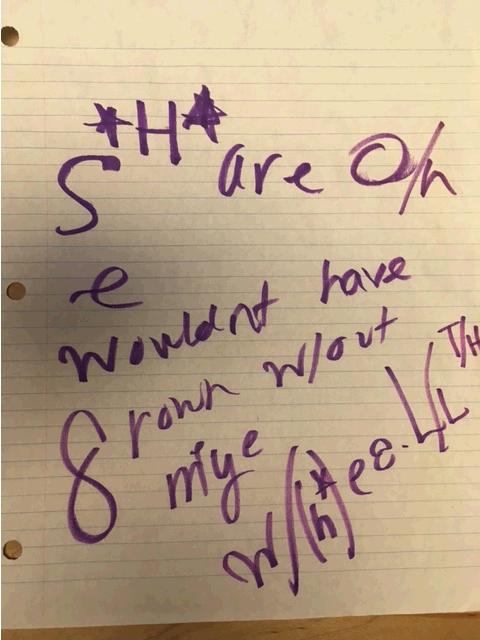 *H*
S are O/n
e
wouldnt have
grown w/out
miye
w/(h*)ee.